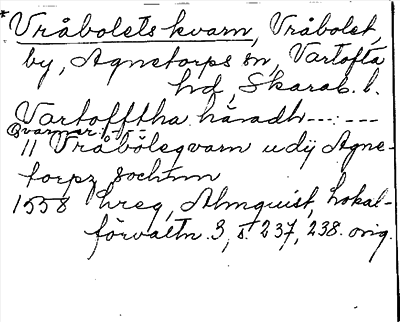 *Vråbolets kvarn, Vråbolet,
by, Agnetorps sn, Vartofta
hd, Skarab. l.
Vartofftha häradh --- : ---
Qvarnar: - - -
11 Vråbölegvarn udij Agne-
torpz sochnn
1558 hreg, Almquist, Lokal-
förvaltn. 3, s. 237, 238. orig.